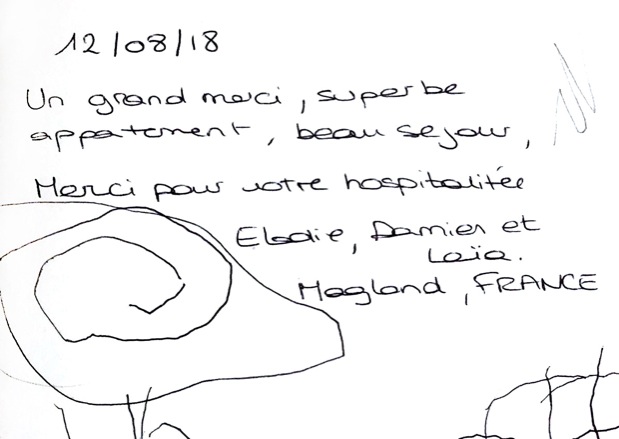 12/08/18
Un grand merci, superbe
appatement, beau sejour,
Merci pour votre hospitalitée
Elodie, Damien et
Laïa.
Magland, FRANCE